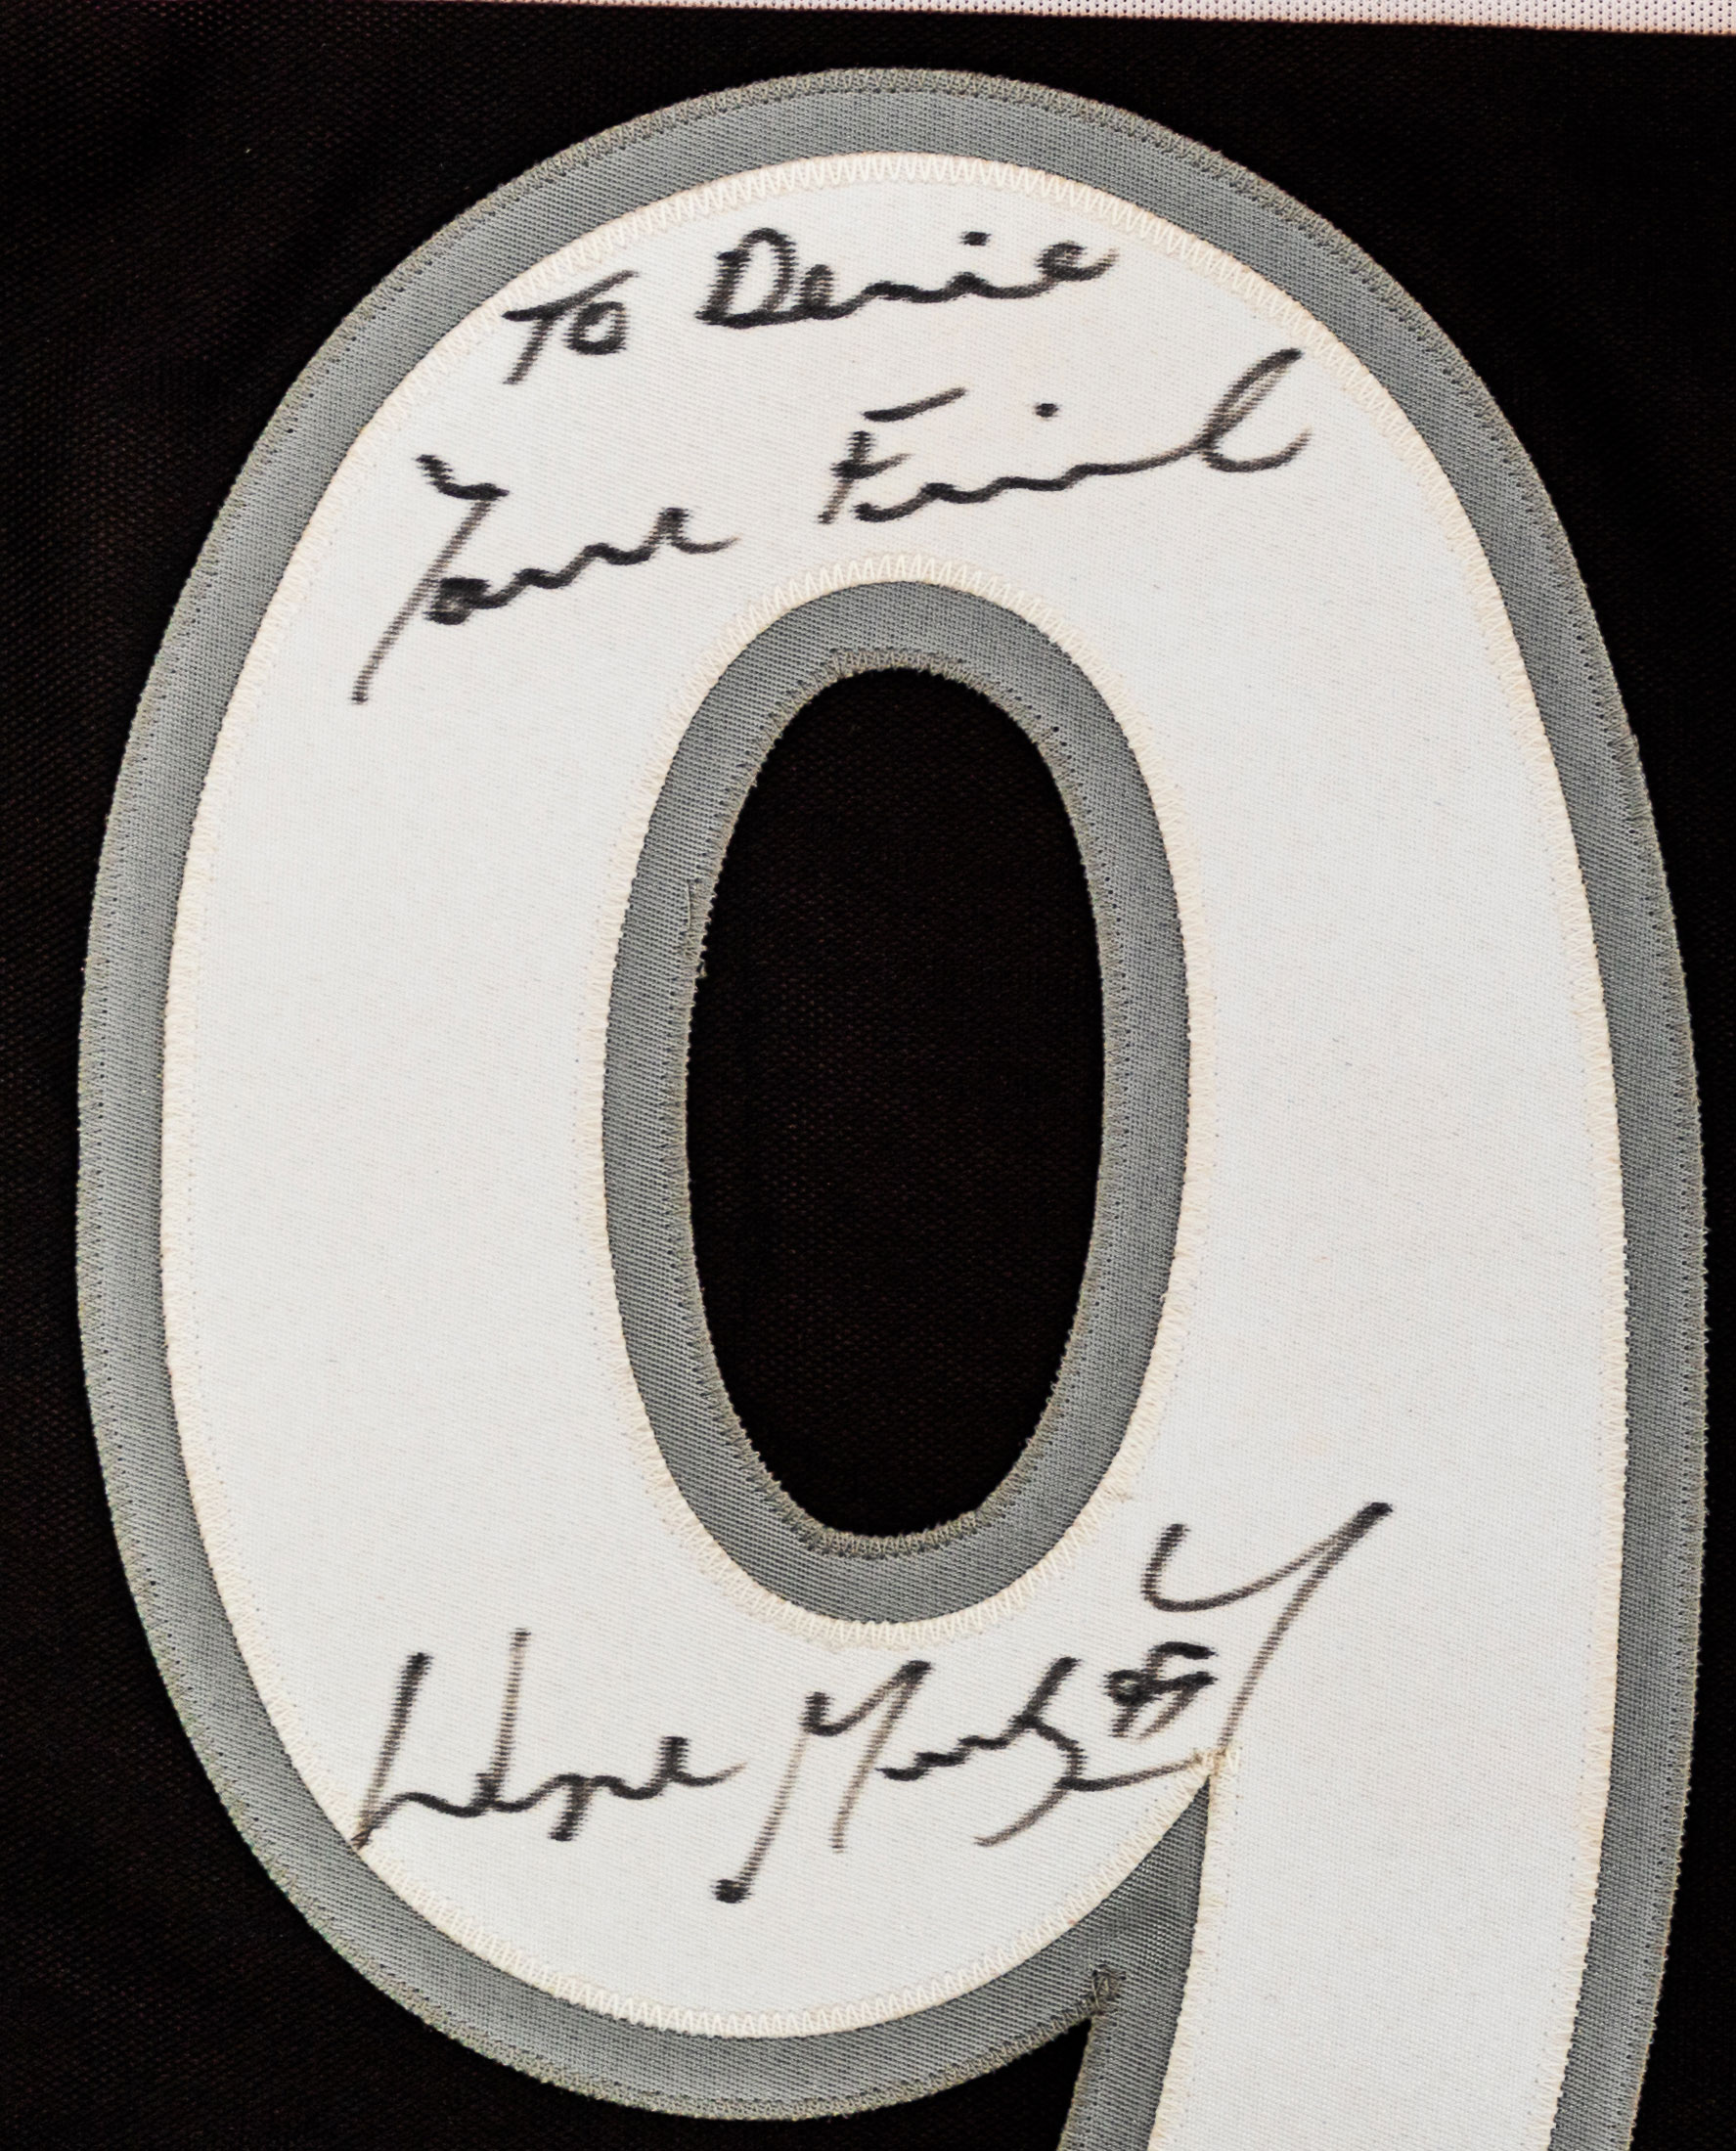 To Denie
Your Friend
Wayne Gretzky
9